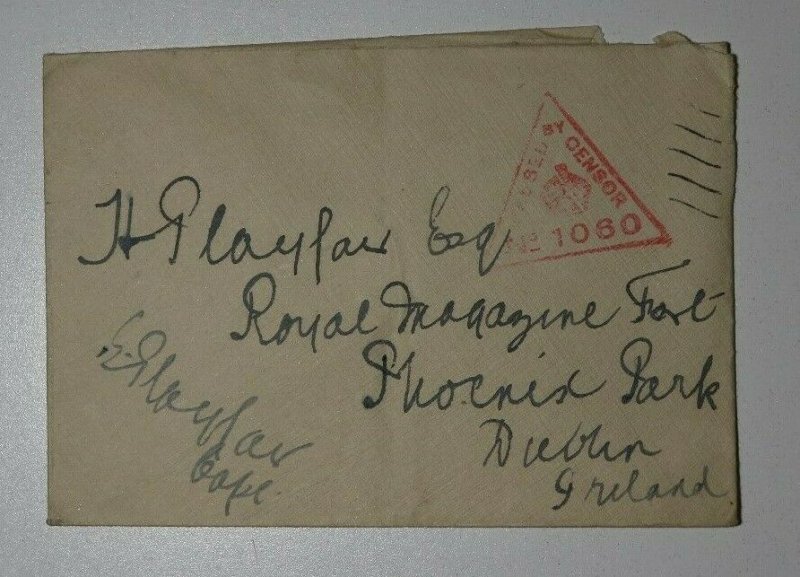 PASSED BY CENSOR
No 1060
H Playfair Esq
Royal Magazine Fort
Phoenix Park
Dublin
Ireland
E. Playfair
Capt.